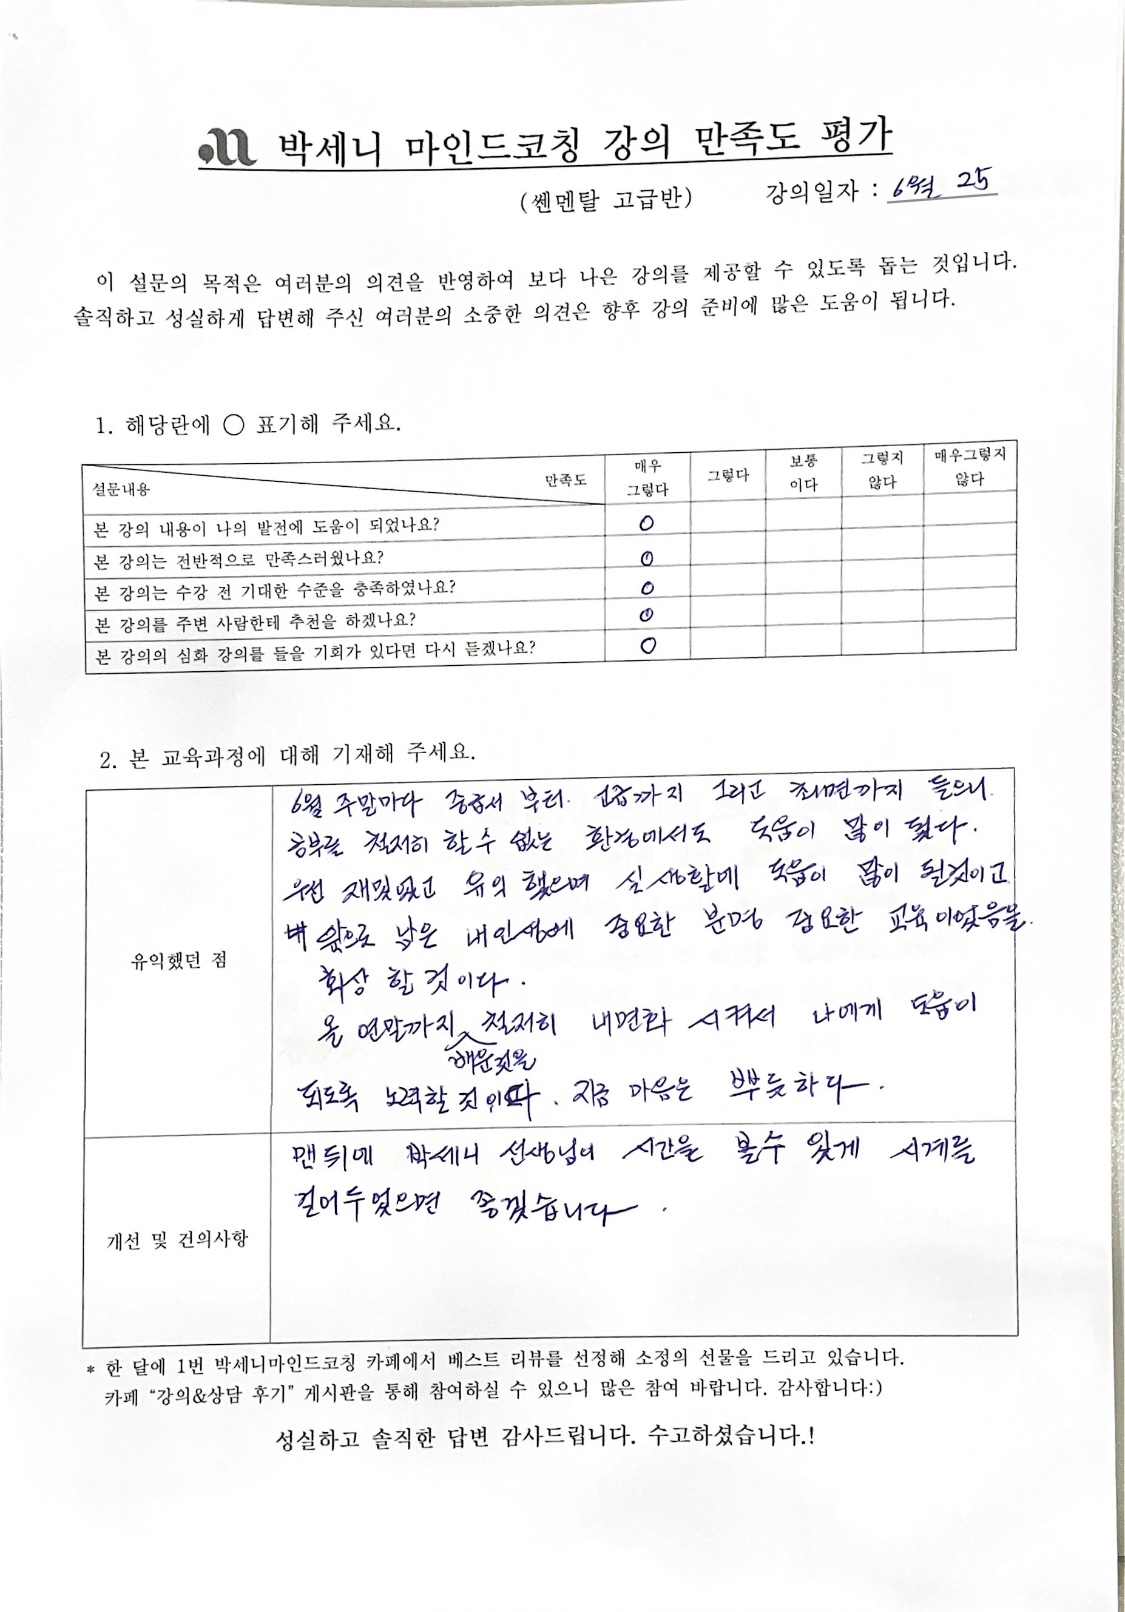 박세니 마인드코칭 강의 만족도 평가
(쎈멘탈 고급반) 강의일자 : 6월 25
이 설문의 목적은 여러분의 의견을 반영하여 보다 나은 강의를 제공할 수 있도록 돕는 것입니다.
솔직하고 성실하게 답변해 주신 여러분의 소중한 의견은 향후 강의 준비에 많은 도움이 됩니다.
1. 해당란에 ○ 표기해 주세요.
설문내용 만족도 매우 그렇다 그렇다 보통 이다 그렇지 않다 매우그렇지 않다
본 강의 내용이 나의 발전에 도움이 되었나요? ○
본 강의는 전반적으로 만족스러웠나요? ○
본 강의는 수강 전 기대한 수준을 충족하였나요? ○
본 강의를 주변 사람한테 추천을 하겠나요? ○
본 강의의 심화 강의를 들을 기회가 있다면 다시 듣겠나요? ○
2. 본 교육과정에 대해 기재해 주세요.
유익했던 점
6월 주말마다 부터 까지 그리고 최면까지 들으니
공부를 철저히 할 수 없는 환경에서도 도움이 많이 됬다.
우선 재밌었고 유익 했으며 실생활에 도움이 많이 될것이고
앞으로 남은 내인생에 중요한 분명 중요한 교육이었음을
회상 할 것이다.
올 연말까지 배운것을 철저히 내면화 시켜서 나에게 도움이
되도록 노력할 것이다. 지금 마음은 뿌듯하다.
개선 및 건의사항
맨뒤에 박세니 선생님이 시간을 볼수 있게 시계를
걸어두었으면 좋겠습니다.
* 한 달에 1번 박세니마인드코칭 카페에서 베스트 리뷰를 선정해 소정의 선물을 드리고 있습니다.
카페 “강의&상담 후기” 게시판을 통해 참여하실 수 있으니 많은 참여 바랍니다. 감사합니다:)
성실하고 솔직한 답변 감사드립니다. 수고하셨습니다.!